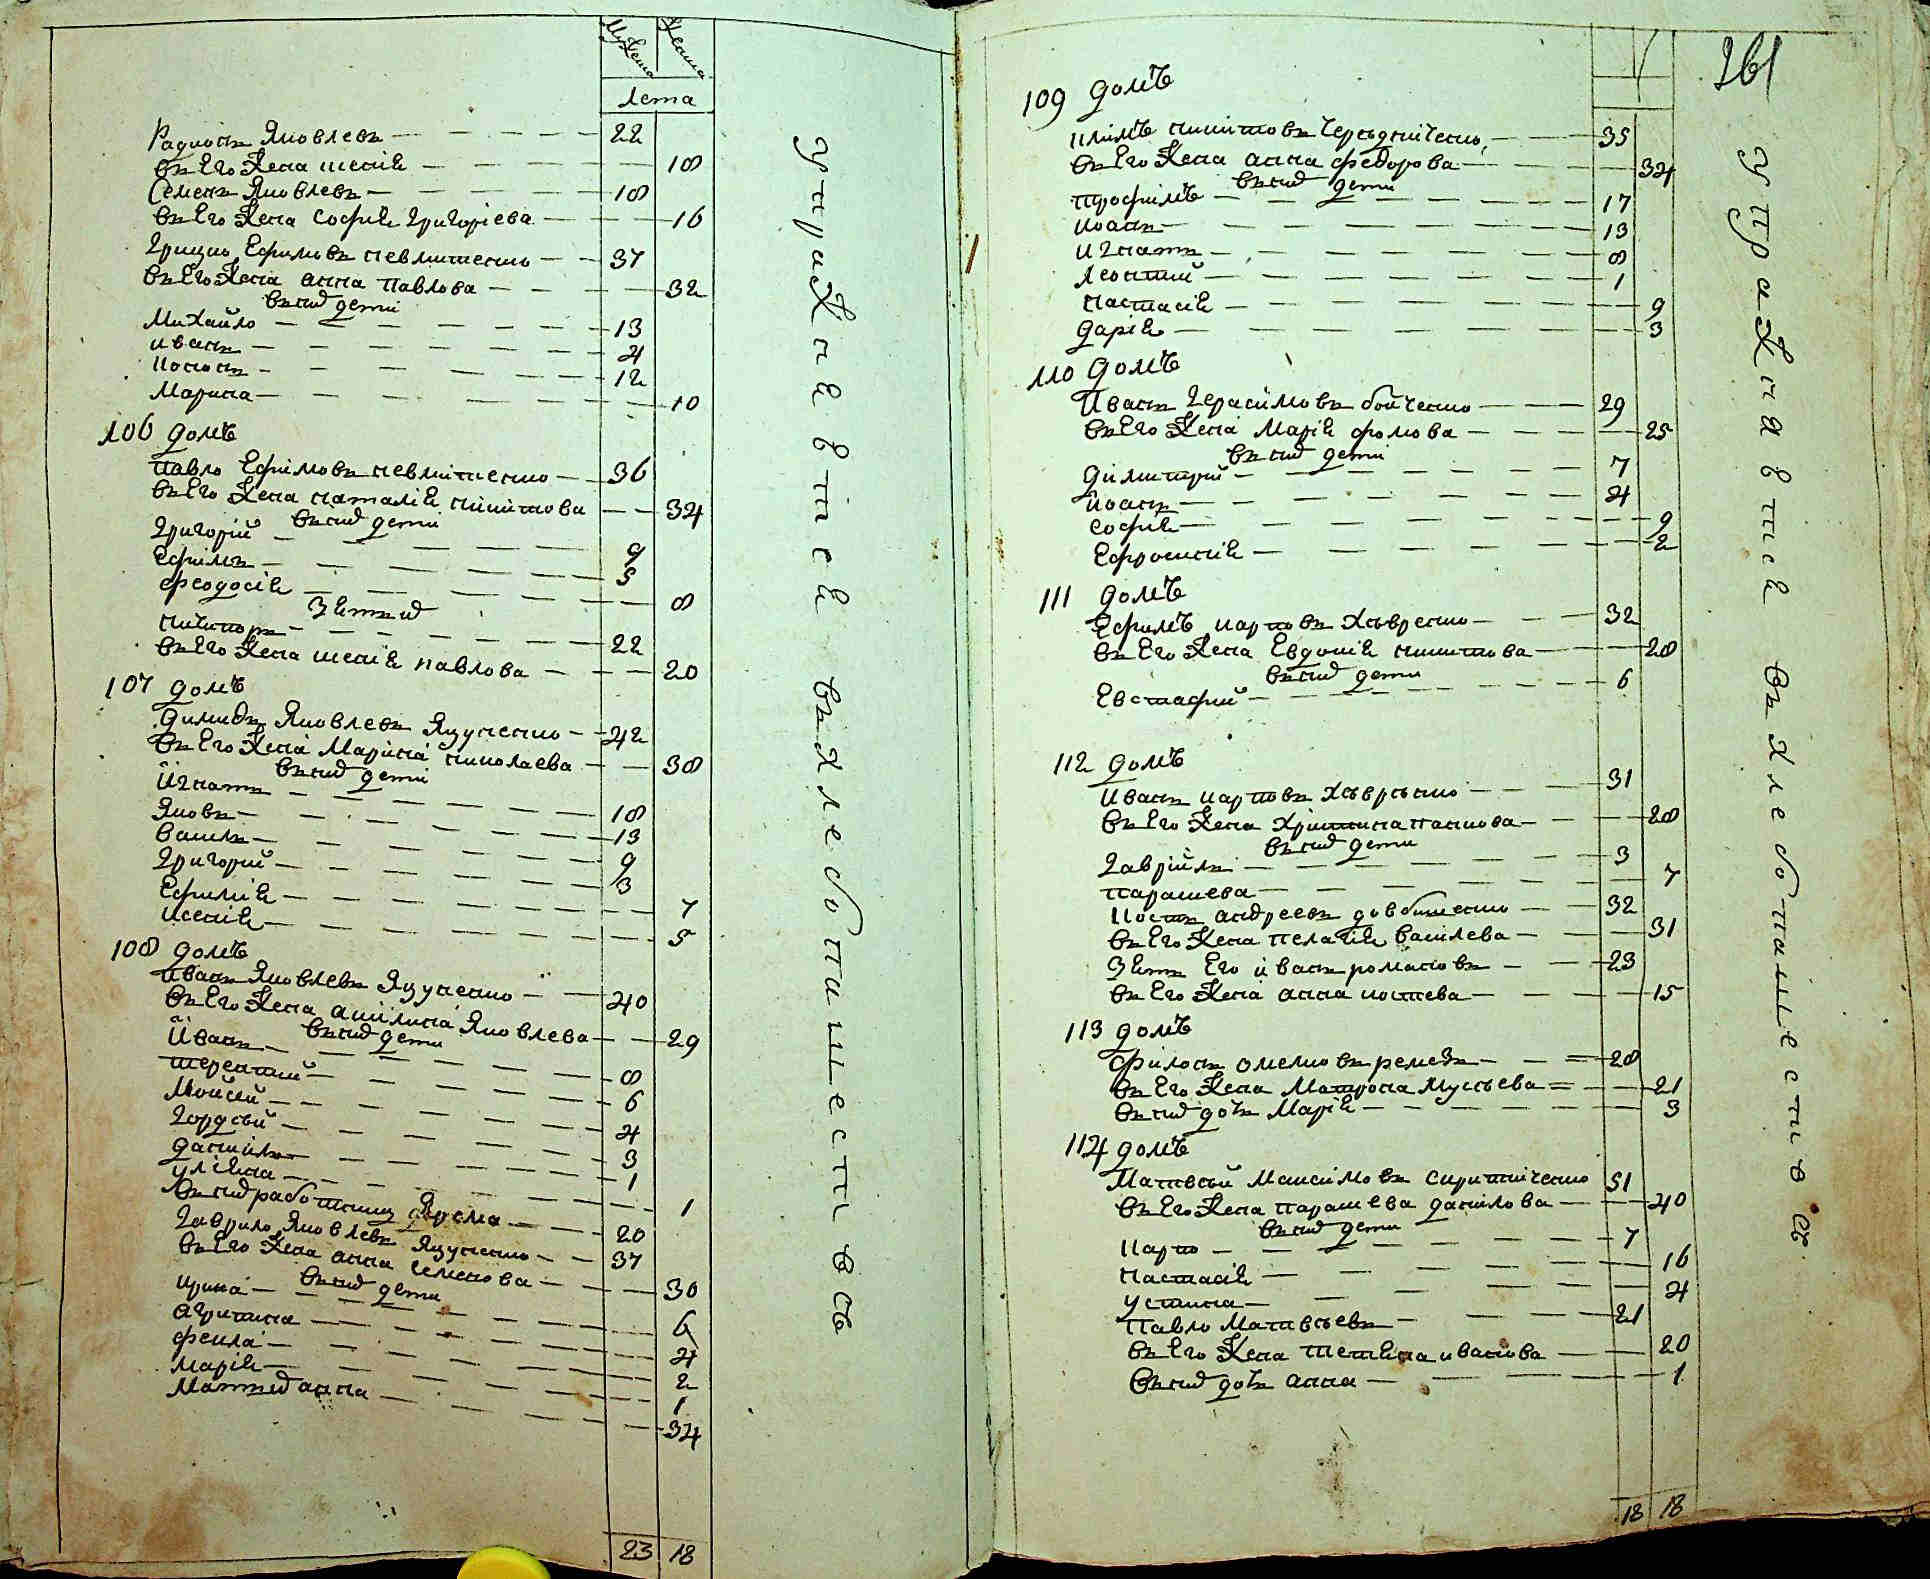 Мужеска Женска
Лета
Радионъ Яковлевъ 22
въ Его Жена 18
Семенъ Яковлевъ 18
въ Его Жена Софиѣ Григоріева 16
Грицко Ефимовъ 37
въ Его Жена анна павлова 32
въ них дети
Михайло 13
иванъ 4
12
Марина 10
106 домъ
павло Ефимовъ 36
въ Его Жена наталіѣ никитова 34
въ них дети
Григорій 9
Ефимъ 5
феодосіѣ 8
Зѣть их
никифоръ 22
въ Его Жена павлова 20
107 домъ
Димидъ Яковлевъ Яцуненко 42
въ Его Жена Марина николаева 38
въ них дети
Игнатъ 18
Яковъ 13
василь 9
Григорий 3
Ефиміѣ 7
ксеніѣ 5
108 домъ
иванъ Яковлевъ Яцуненко 40
въ Его Жена акилина Яковлева 29
въ них дети
Иванъ 8
терентий 6
Мойсей 4
Гордѣй 3
данило 1
улѣна 1
въ них работникъ Ярема 20
Гаврило Яковлевъ Яцуненко 37
въ Его Жена анна семенова 30
въ них дети
ирина 6
агрипина 4
фекла 2
Маріѣ 1
Мать их анна 34
23 18
упражнѣвтсѣ въ хлебопашествѣ
261
109 домъ
климъ никитовъ 35
въ Его Жена анна федорова 34
въ них дети
трофимъ 17
иоанъ 13
игнатъ 8
леонтий 1
настасіѣ 9
даріѣ 3
110 домъ
Иванъ Герасимовъ бойченко 29
въ Его Жена Маріѣ фомова 25
въ них дети
димитрий 7
иоанъ 4
софіѣ 9
Ефросиніѣ 2
111 домъ
Ефимъ карповъ 32
въ Его Жена Евдокіѣ никитова 28
въ них дети
Евстафий 6
112 домъ
иванъ карповъ 31
въ Его Жена христина 28
въ них дети
Гавріилъ 3
парашева 7
костъ андреевъ довбишенко 32
въ Его Жена пелагіѣ василева 31
Зѣть Его иванъ романовъ 23
въ Его Жена анна костева 15
113 домъ
филонъ омелковъ ремезъ 28
въ Его Жена Матрона Мусѣева 21
въ них дочь Маріѣ 3
114 домъ
Матвѣй Максимовъ 51
въ Его Жена парашева данилова 40
въ них дети
карпо 7
настасіѣ 16
устина 4
павло Матвѣевъ 21
въ Его Жена тетѣна иванова 20
въ них дочь анна 1
18 18
упражнѣвтсѣ въ хлебопашествѣ